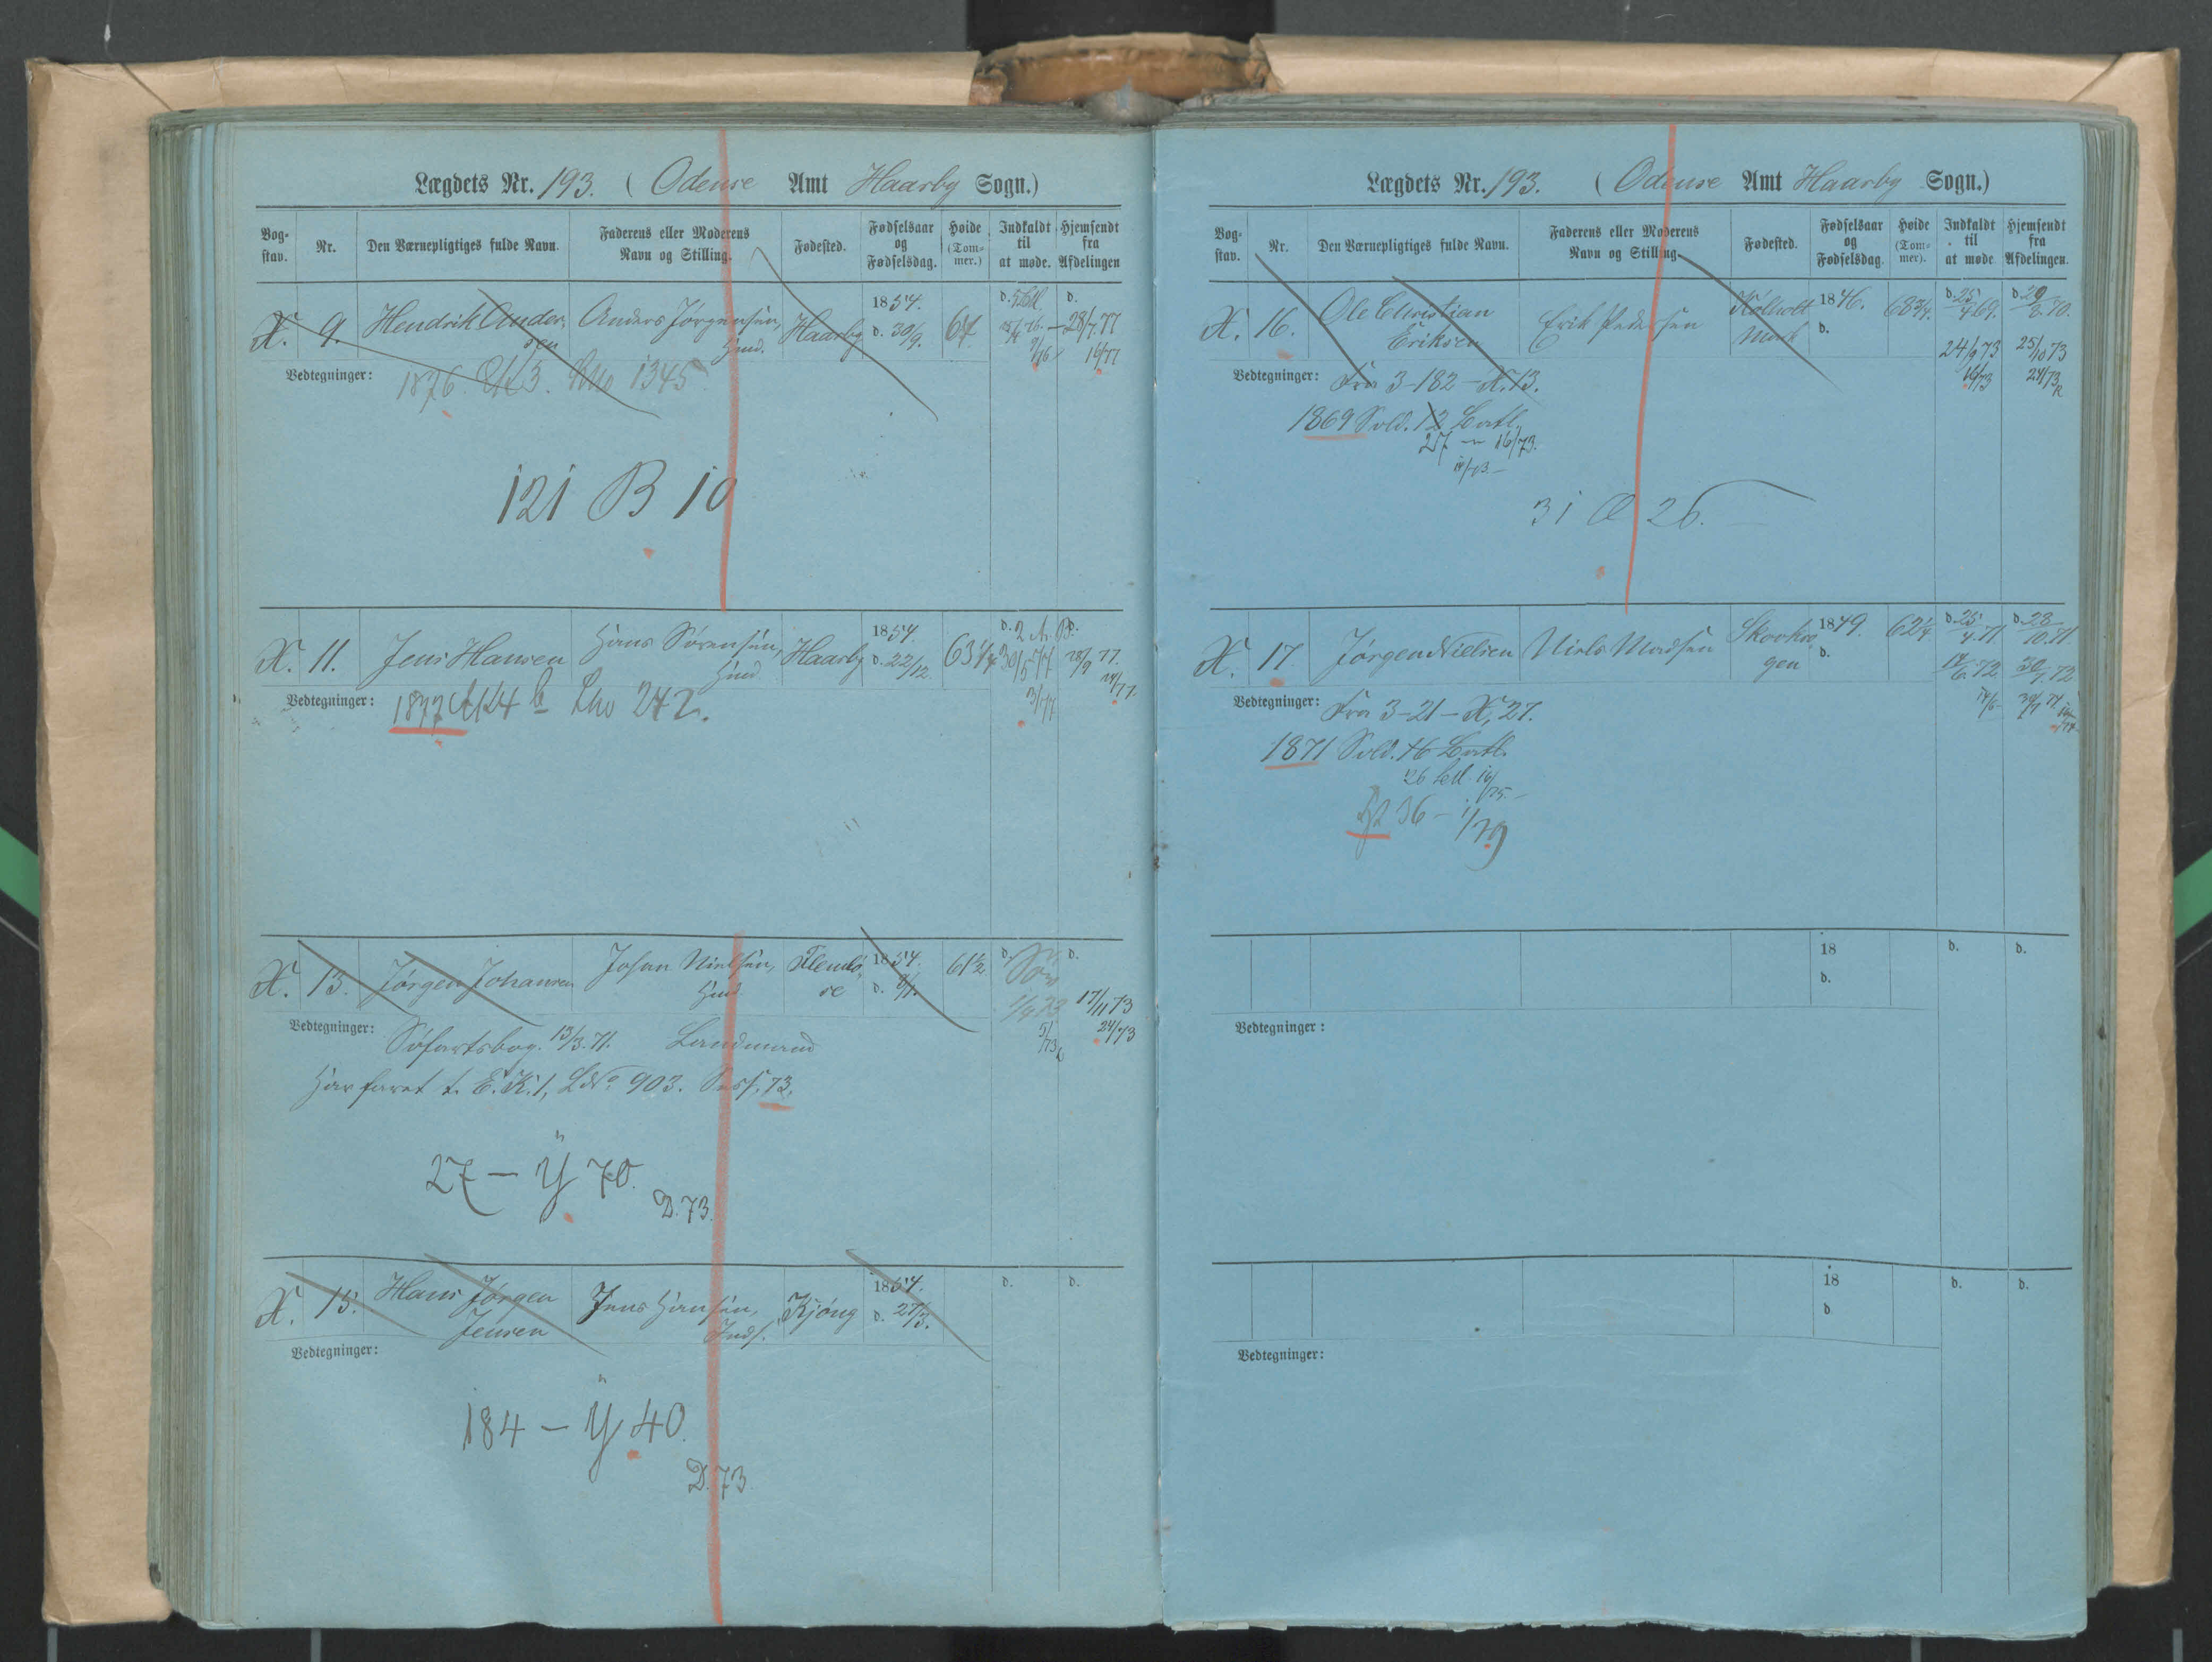 Lægdets Nr. 193. ( Odense Amt Haarby Sogn.)
Bogstav. Nr. Den Værnepligtiges fulde Navn. Faderens eller Moderens Navn og Stilling. Fødested. Fødselsaar og Fødselsdag. Høide (Tommer.) Indkaldt til at møde. Hjemsendt fra Afdelingen
X. 9. Hendrik Andersen Anders Jørgensen, Huusmd. Haarby 1854. d. 30/9. 67 d. d. 28/7 77
16/77
Vedtegninger: 1876 1345
121 B 10
X. 11. Jens Hansen Hans Sørensen, Haarby 1854. d. 22/12. 63 1/4 d. d. 28/9 77.
Vedtegninger: 1877 Lno 242.
X. 13. Jørgen Johansen Johan Nielsen, Flemløse 1854. d. 61 1/2 d. d.
17/11 73
24/73
Vedtegninger: Søfartsbog. 13/3. 71. Landmand
Har faret t. E. K. 1, LNo 903. Sess. 73.
27 – Y 70.
D. 73.
X. 15. Hans Jørgen Jensen Jens Hansen, Inds. Kjöng 1854. d. 27/3. d. d.
Vedtegninger:
184 – Y 40.
D. 73.
Lægdets Nr. 193. ( Odense Amt Haarby Sogn.)
Bogstav. Nr. Den Værnepligtiges fulde Navn. Faderens eller Moderens Navn og Stilling. Fødested. Fødselsaar og Fødselsdag. Høide (Tommer). Indkaldt til at møde Hjemsendt fra Afdelingen.
X. 16. Ole Christian Eriksen Erik Pedersen Kølholt Mark 1846. d. 68 3/4. d. 25/4 69. d. 29/8 70.
24/9 73 25/10 73
16/73 24/73
Vedtegninger: Fra 3-182-X. 13.
1869 Sold. 12 Batl.
27 – 16/73.
31 Æ 26.
X. 17. Jørgen Nielsen Niels Madsen 1849. d. 62 1/4. d. 25/4. 71. d. 28/10. 71.
72. 30/9. 72
Vedtegninger: Fra 3-21-X, 27.
1871 Sold. 16 Batl.
26
36 – 1/79
18 d. d.
d.
Vedtegninger:
18 d. d.
d
Vedtegninger: